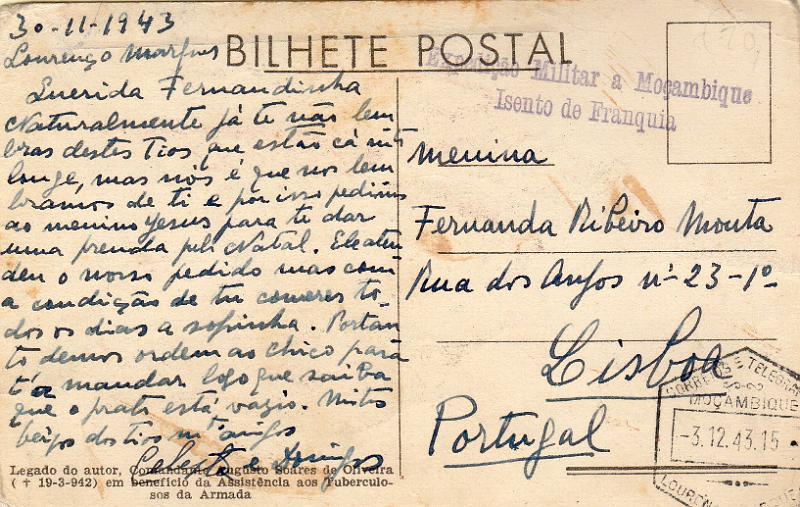 30-11-1943
Lourenço Marques
BILHETE POSTAL
Querida Fernandinha
Naturalmente já te não lem
bras destes Tios, que estão cá mto
longe, mas nós é que nos lem
bramos de ti e por isso pedimos
ao menino Jesus para te dar
uma prenda pelo Natal. Ele aten
deu o nosso pedido mas com
a condição de tu comeres to-
dos os dias a sopinha. Portan
to demos ordem ao Chico para
t'a mandar logo que saiba
que o prato está vazio. Muitos
beijos dos tios mto amigos
Celeste e
Legado do autor, Comandante Augusto Soares de Oliveira
(† 19-3-942) em benefício da Assistência aos Tuberculo-
sos da Armada
Expedição Militar a Moçambique
Isento de Franquia
Menina
Fernanda Ribeiro Mouta
Rua dos Anjos nº 23-1º
Lisboa
Portugal
CORREIOS E TELEGRA
MOÇAMBIQUE
-3.12.43.15
LOUREN